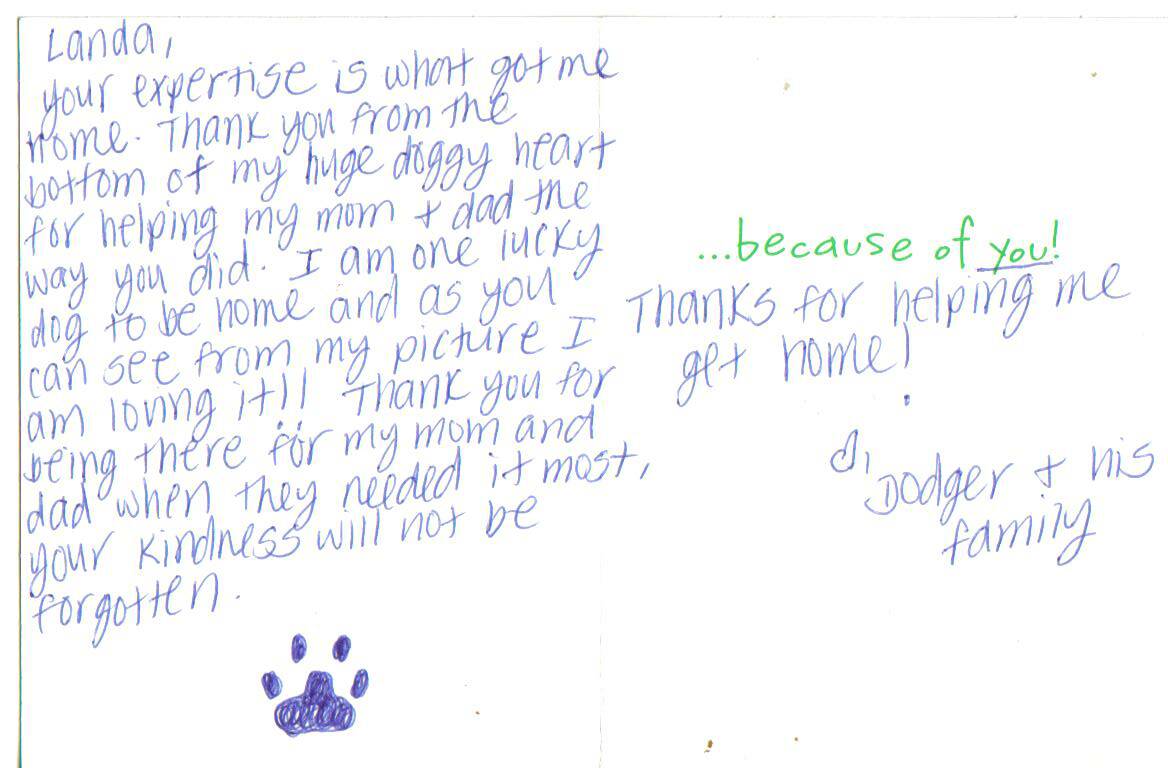 Landa,
your expertise is what got me
home. Thank you from the
bottom of my huge doggy heart
for helping my mom + dad the
way you did. I am one lucky
dog to be home and as you
can see from my picture I
am loving it!! Thank you for
being there for my mom and
dad when they needed it most,
your kindness will not be
forgotten.
...because of you!
Thanks for helping me
get home!
Dodger + his
family